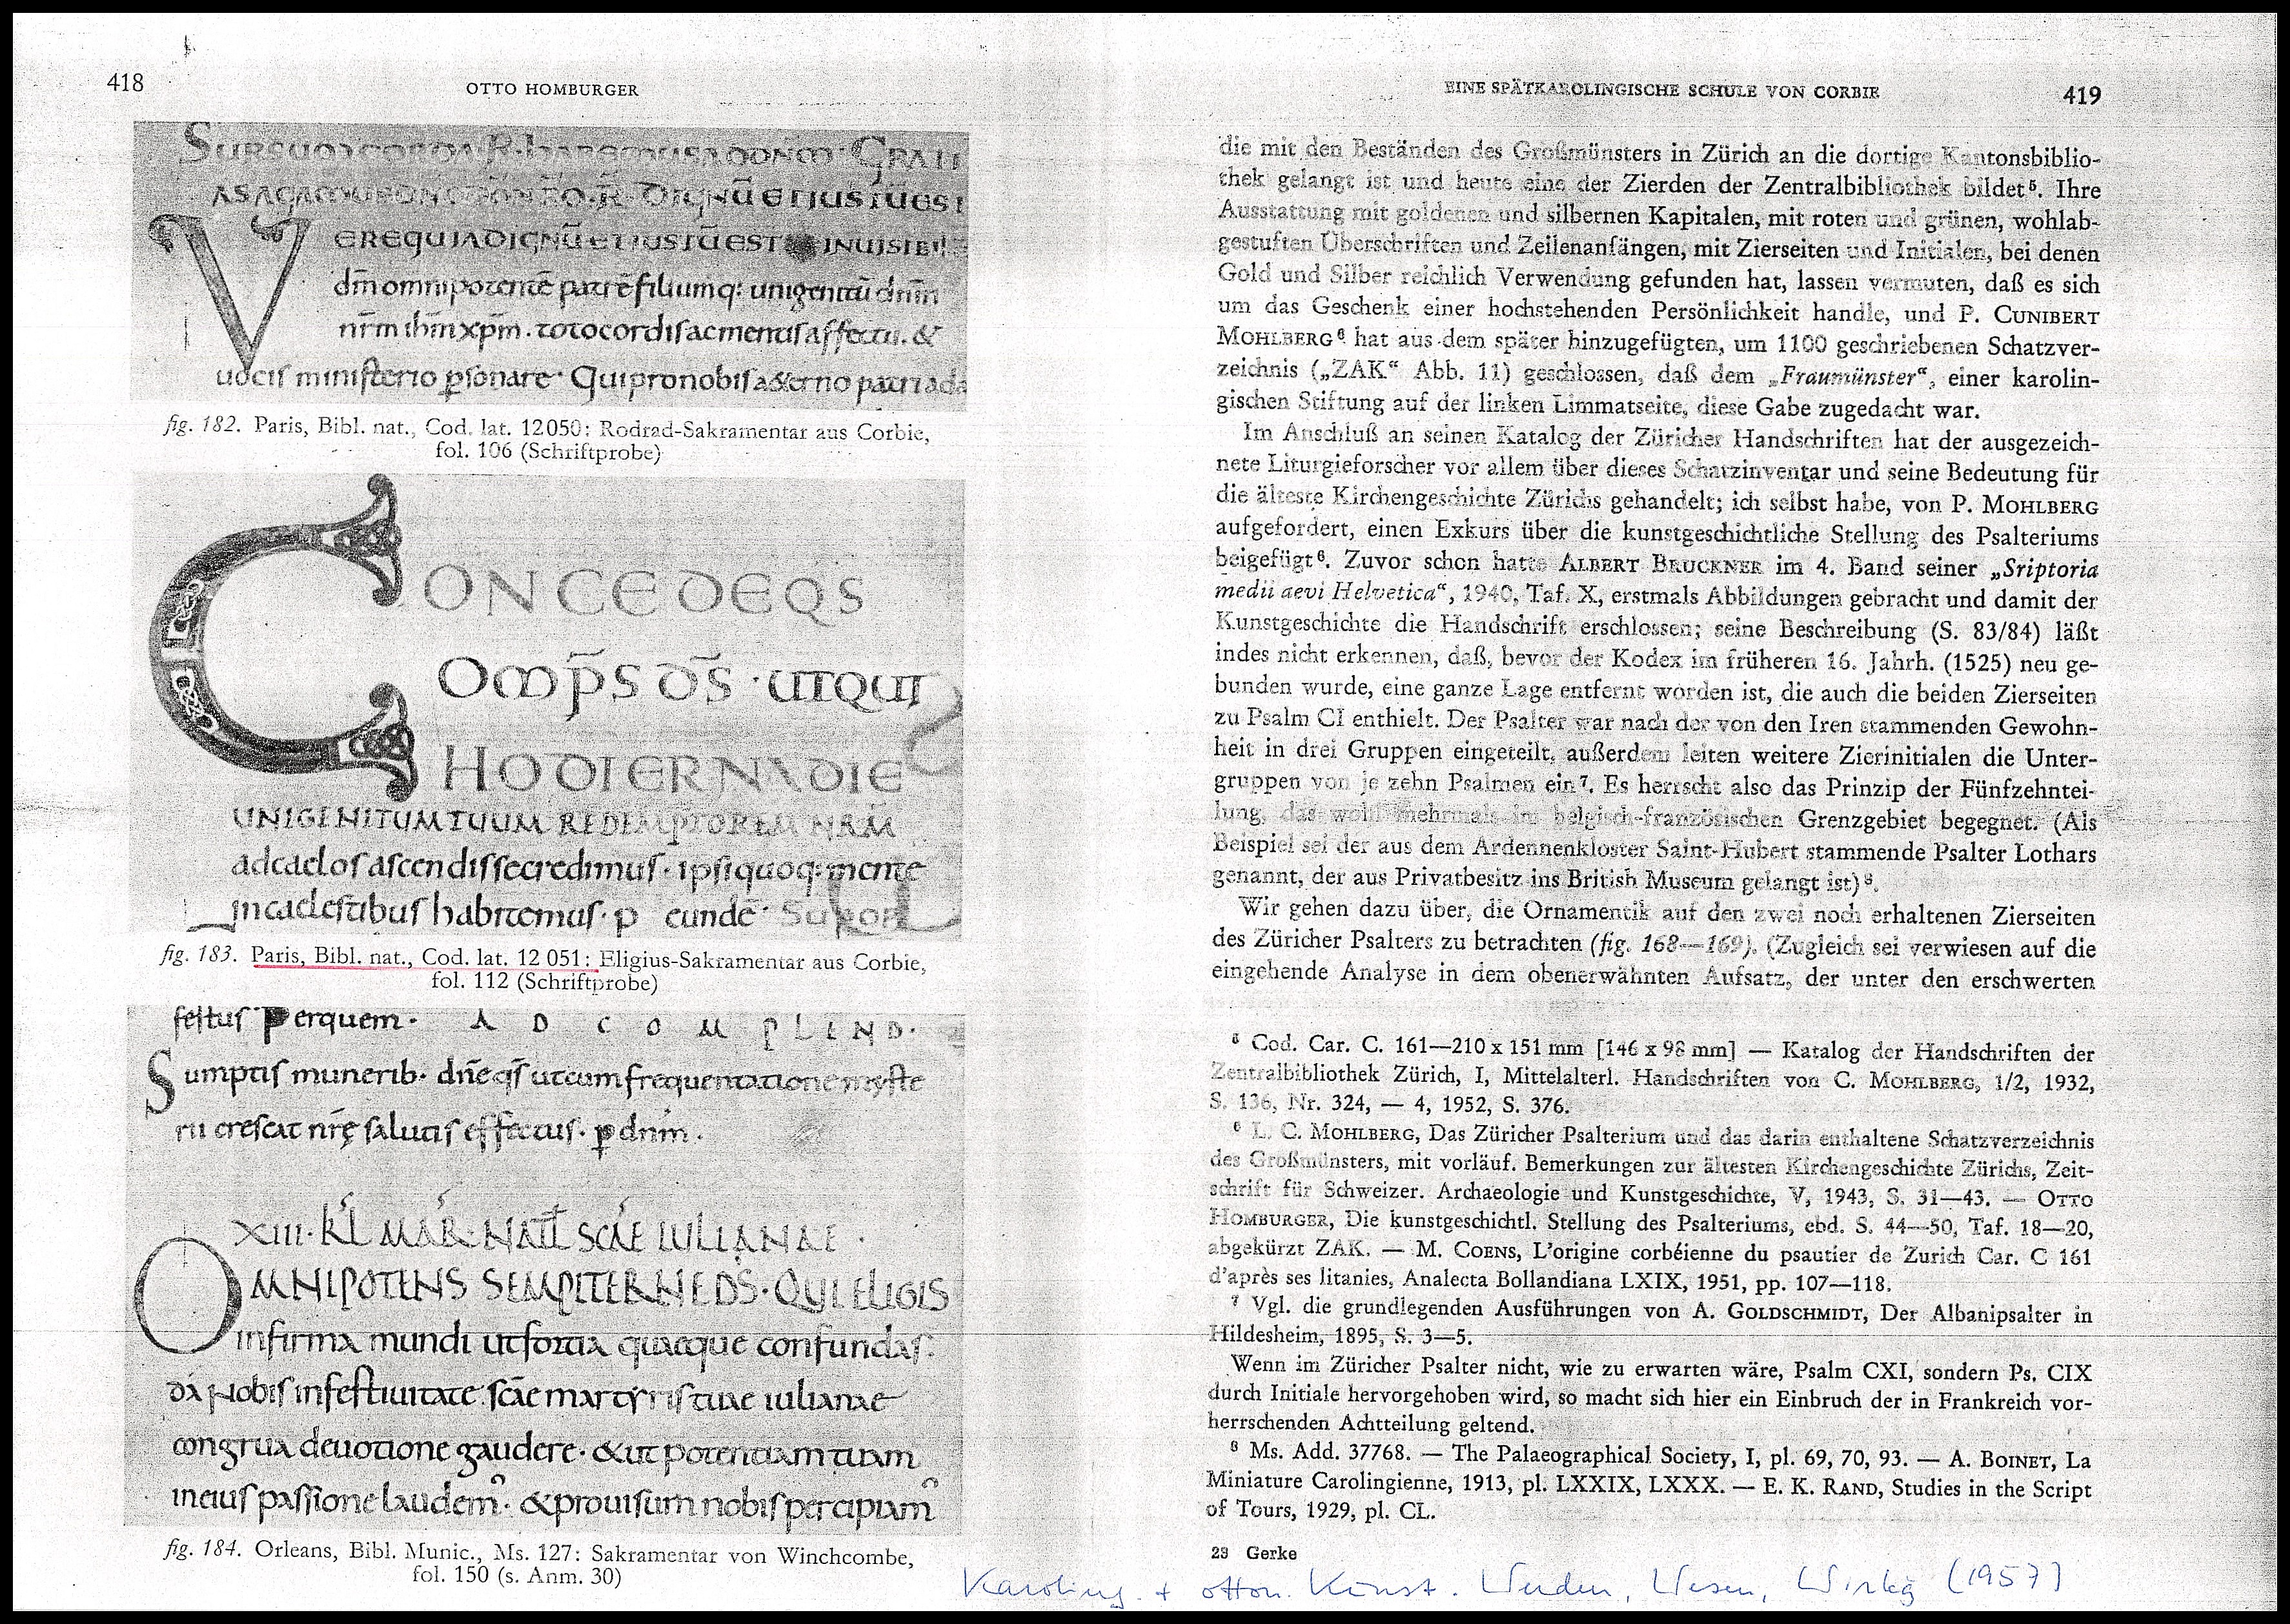 418
OTTO HOMBURGER
SURSUM CORDA R. habemus ad dnm. GRATI
AS AGAMUS DNO DO NRO. R. DIGNŪ ET IUSTŪ EST
VERE QUIA DIGNŪ ET IUSTŪ EST INUISIBIL
dm̄ omnipotentē patrē filiumq: unigenitū dnm̄
nr̄m ihm̄ xpm̄. toto cordis ac mentis affectu. &
uocis ministerio psonare. Qui pro nobis aeterno patri ada
fig. 182. Paris, Bibl. nat., Cod. lat. 12050: Rodrad-Sakramentar aus Corbie,
fol. 106 (Schriftprobe)
CONCEDE QS
OMPS DS · UT QUI
HODIERNA DIE
UNIGENITUM TUUM REDEMPTOREM NRM
ad caelos ascendisse credimus. ipsi quoq: mente
in caelestibus habitemus. p eundē.
fig. 183. Paris, Bibl. nat., Cod. lat. 12 051: Eligius-Sakramentar aus Corbie,
fol. 112 (Schriftprobe)
festus per quem. AD COMPLEND.
Sumptis munerib. dne qs ut cum frequentatione myste
rii crescat nrę salutis effectus. p dnm.
XIII. KL MAR. NATL SCAE IULIANAE.
OMNIPOTENS SEMPITERNE DS. QUI ELIGIS
infirma mundi ut fortia quaeque confundas.
da nobis in festiuitate scae martyris tuae iulianae
congrua deuotione gaudere. & ut potentiam tuam
in eius passione laudem. & prouisum nobis percipiam
fig. 184. Orleans, Bibl. Munic., Ms. 127: Sakramentar von Winchcombe,
fol. 150 (s. Anm. 30)
EINE SPÄTKAROLINGISCHE SCHULE VON CORBIE
419
die mit den Beständen des Großmünsters in Zürich an die dortige Kantonsbiblio-
thek gelangt ist und heute eine der Zierden der Zentralbibliothek bildet⁵. Ihre
Ausstattung mit goldenen und silbernen Kapitalen, mit roten und grünen, wohlab-
gestuften Überschriften und Zeilenanfängen, mit Zierseiten und Initialen, bei denen
Gold und Silber reichlich Verwendung gefunden hat, lassen vermuten, daß es sich
um das Geschenk einer hochstehenden Persönlichkeit handle, und P. CUNIBERT
MOHLBERG⁶ hat aus dem später hinzugefügten, um 1100 geschriebenen Schatzver-
zeichnis („ZAK“ Abb. 11) geschlossen, daß dem „Fraumünster“, einer karolin-
gischen Stiftung auf der linken Limmatseite, diese Gabe zugedacht war.
Im Anschluß an seinen Katalog der Züricher Handschriften hat der ausgezeich-
nete Liturgieforscher vor allem über dieses Schatzinventar und seine Bedeutung für
die älteste Kirchengeschichte Zürichs gehandelt; ich selbst habe, von P. MOHLBERG
aufgefordert, einen Exkurs über die kunstgeschichtliche Stellung des Psalteriums
beigefügt⁶. Zuvor schon hatte ALBERT BRUCKNER im 4. Band seiner „Sriptoria
medii aevi Helvetica“, 1940, Taf. X, erstmals Abbildungen gebracht und damit der
Kunstgeschichte die Handschrift erschlossen; seine Beschreibung (S. 83/84) läßt
indes nicht erkennen, daß, bevor der Kodex im früheren 16. Jahrh. (1525) neu ge-
bunden wurde, eine ganze Lage entfernt worden ist, die auch die beiden Zierseiten
zu Psalm CI enthielt. Der Psalter war nach der von den Iren stammenden Gewohn-
heit in drei Gruppen eingeteilt, außerdem leiten weitere Zierinitialen die Unter-
gruppen von je zehn Psalmen ein⁷. Es herrscht also das Prinzip der Fünfzehntei-
lung, das wohl mehrmals im belgisch-französischen Grenzgebiet begegnet. (Als
Beispiel sei der aus dem Ardennenkloster Saint-Hubert stammende Psalter Lothars
genannt, der aus Privatbesitz ins British Museum gelangt ist)⁸.
Wir gehen dazu über, die Ornamentik auf den zwei noch erhaltenen Zierseiten
des Züricher Psalters zu betrachten (fig. 168—169). (Zugleich sei verwiesen auf die
eingehende Analyse in dem obenerwähnten Aufsatz, der unter den erschwerten
⁵ Cod. Car. C. 161—210 x 151 mm [146 x 98 mm] — Katalog der Handschriften der
Zentralbibliothek Zürich, I, Mittelalterl. Handschriften von C. MOHLBERG, 1/2, 1932,
S. 136, Nr. 324, — 4, 1952, S. 376.
⁶ L. C. MOHLBERG, Das Züricher Psalterium und das darin enthaltene Schatzverzeichnis
des Großmünsters, mit vorläuf. Bemerkungen zur ältesten Kirchengeschichte Zürichs, Zeit-
schrift für Schweizer. Archaeologie und Kunstgeschichte, V, 1943, S. 31—43. — OTTO
HOMBURGER, Die kunstgeschichtl. Stellung des Psalteriums, ebd. S. 44—50, Taf. 18—20,
abgekürzt ZAK. — M. COENS, L'origine corbéienne du psautier de Zurich Car. C 161
d'après ses litanies, Analecta Bollandiana LXIX, 1951, pp. 107—118.
⁷ Vgl. die grundlegenden Ausführungen von A. GOLDSCHMIDT, Der Albanipsalter in
Hildesheim, 1895, S. 3—5.
Wenn im Züricher Psalter nicht, wie zu erwarten wäre, Psalm CXI, sondern Ps. CIX
durch Initiale hervorgehoben wird, so macht sich hier ein Einbruch der in Frankreich vor-
herrschenden Achtteilung geltend.
⁸ Ms. Add. 37768. — The Palaeographical Society, I, pl. 69, 70, 93. — A. BOINET, La
Miniature Carolingienne, 1913, pl. LXXIX, LXXX. — E. K. RAND, Studies in the Script
of Tours, 1929, pl. CL.
23 Gerke
Karoling. + otton. Kunst. Werden, Wesen, Wirkg (1957)